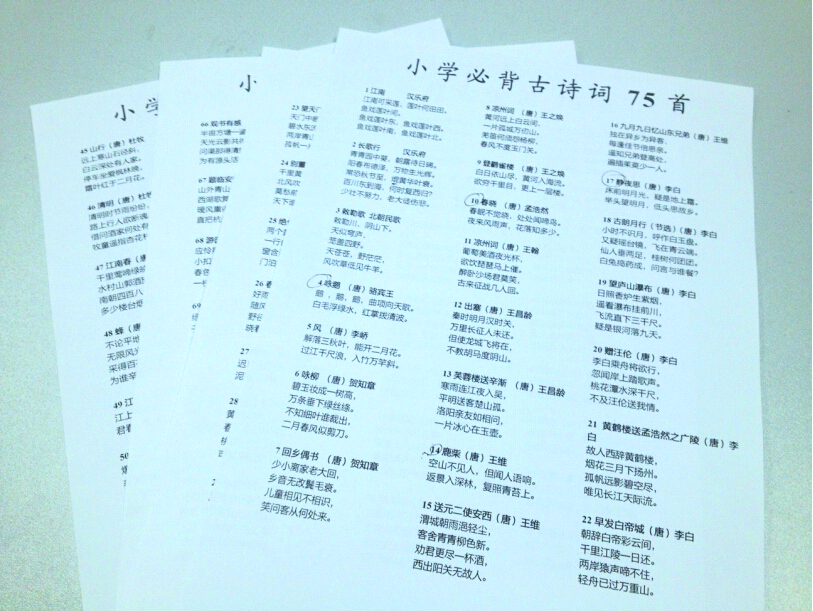 小学必背古诗词 75 首
1 江南 汉乐府
江南可采莲，莲叶何田田。
鱼戏莲叶间。
鱼戏莲叶东，鱼戏莲叶西。
鱼戏莲叶南，鱼戏莲叶北。
2 长歌行 汉乐府
青青园中葵，朝露待日晞。
阳春布德泽，万物生光辉。
常恐秋节至，焜黄华叶衰。
百川东到海，何时复西归？
少壮不努力，老大徒伤悲。
3 敕勒歌 北朝民歌
敕勒川，阴山下。
天似穹庐，
笼盖四野。
天苍苍，野茫茫，
风吹草低见牛羊。
4 咏鹅 （唐）骆宾王
鹅，鹅，鹅，曲项向天歌。
白毛浮绿水，红掌拨清波。
5 风 （唐）李峤
解落三秋叶，能开二月花。
过江千尺浪，入竹万竿斜。
6 咏柳 （唐）贺知章
碧玉妆成一树高，
万条垂下绿丝绦。
不知细叶谁裁出，
二月春风似剪刀。
7 回乡偶书 （唐）贺知章
少小离家老大回，
乡音无改鬓毛衰。
儿童相见不相识，
笑问客从何处来。
8 凉州词 （唐）王之涣
黄河远上白云间，
一片孤城万仞山。
羌笛何须怨杨柳，
春风不度玉门关。
9 登鹳雀楼 （唐）王之涣
白日依山尽，黄河入海流。
欲穷千里目，更上一层楼。
10 春晓 （唐）孟浩然
春眠不觉晓，处处闻啼鸟。
夜来风雨声，花落知多少。
11 凉州词 （唐）王翰
葡萄美酒夜光杯，
欲饮琵琶马上催。
醉卧沙场君莫笑，
古来征战几人回。
12 出塞 （唐）王昌龄
秦时明月汉时关，
万里长征人未还。
但使龙城飞将在，
不教胡马度阴山。
13 芙蓉楼送辛渐 （唐）王昌龄
寒雨连江夜入吴，
平明送客楚山孤。
洛阳亲友如相问，
一片冰心在玉壶。
14 鹿柴 （唐）王维
空山不见人，但闻人语响。
返景入深林，复照青苔上。
15 送元二使安西（唐）王维
渭城朝雨浥轻尘，
客舍青青柳色新。
劝君更尽一杯酒，
西出阳关无故人。
16 九月九日忆山东兄弟（唐）王维
独在异乡为异客，
每逢佳节倍思亲。
遥知兄弟登高处，
遍插茱萸少一人。
17 静夜思（唐）李白
床前明月光，疑是地上霜。
举头望明月，低头思故乡。
18 古朗月行（节选）（唐）李白
小时不识月，呼作白玉盘。
又疑瑶台镜，飞在青云端。
仙人垂两足，桂树何团团。
白兔捣药成，问言与谁餐？
19 望庐山瀑布（唐）李白
日照香炉生紫烟，
遥看瀑布挂前川，
飞流直下三千尺，
疑是银河落九天。
20 赠汪伦（唐）李白
李白乘舟将欲行，
忽闻岸上踏歌声。
桃花潭水深千尺，
不及汪伦送我情。
21 黄鹤楼送孟浩然之广陵（唐）李
白
故人西辞黄鹤楼，
烟花三月下扬州。
孤帆远影碧空尽，
唯见长江天际流。
22 早发白帝城（唐）李白
朝辞白帝彩云间，
千里江陵一日还。
两岸猿声啼不住，
轻舟已过万重山。
小
23 望天门
天门中断
碧水东流
两岸青山
孤帆一
24 别董
千里黄
北风吹
莫愁前
天下谁
25 绝
两个黄
一行白
窗含
门泊
26 春
好雨
随风
野径
晓看
27
迟
泥
28
黄
小
66 观书有感
半亩方塘一鉴
天光云影共徘
问渠那得清
为有源头活
67 题临安
山外青山
西湖歌舞
暖风熏得
直把杭
68 游园
应怜屐
小扣
春色
一
69
小学
45 山行（唐）杜牧
远上寒山石径斜，
白云深处有人家。
停车坐爱枫林晚，
霜叶红于二月花。
46 清明（唐）杜牧
清明时节雨纷纷，
路上行人欲断魂
借问酒家何处有
牧童遥指杏花村
47 江南春（唐）
千里莺啼绿映
水村山郭酒旗
南朝四百八
多少楼台烟
48 蜂（唐）
不论平地
无限风光
采得百花
为谁辛
49 江
江上
君看
50